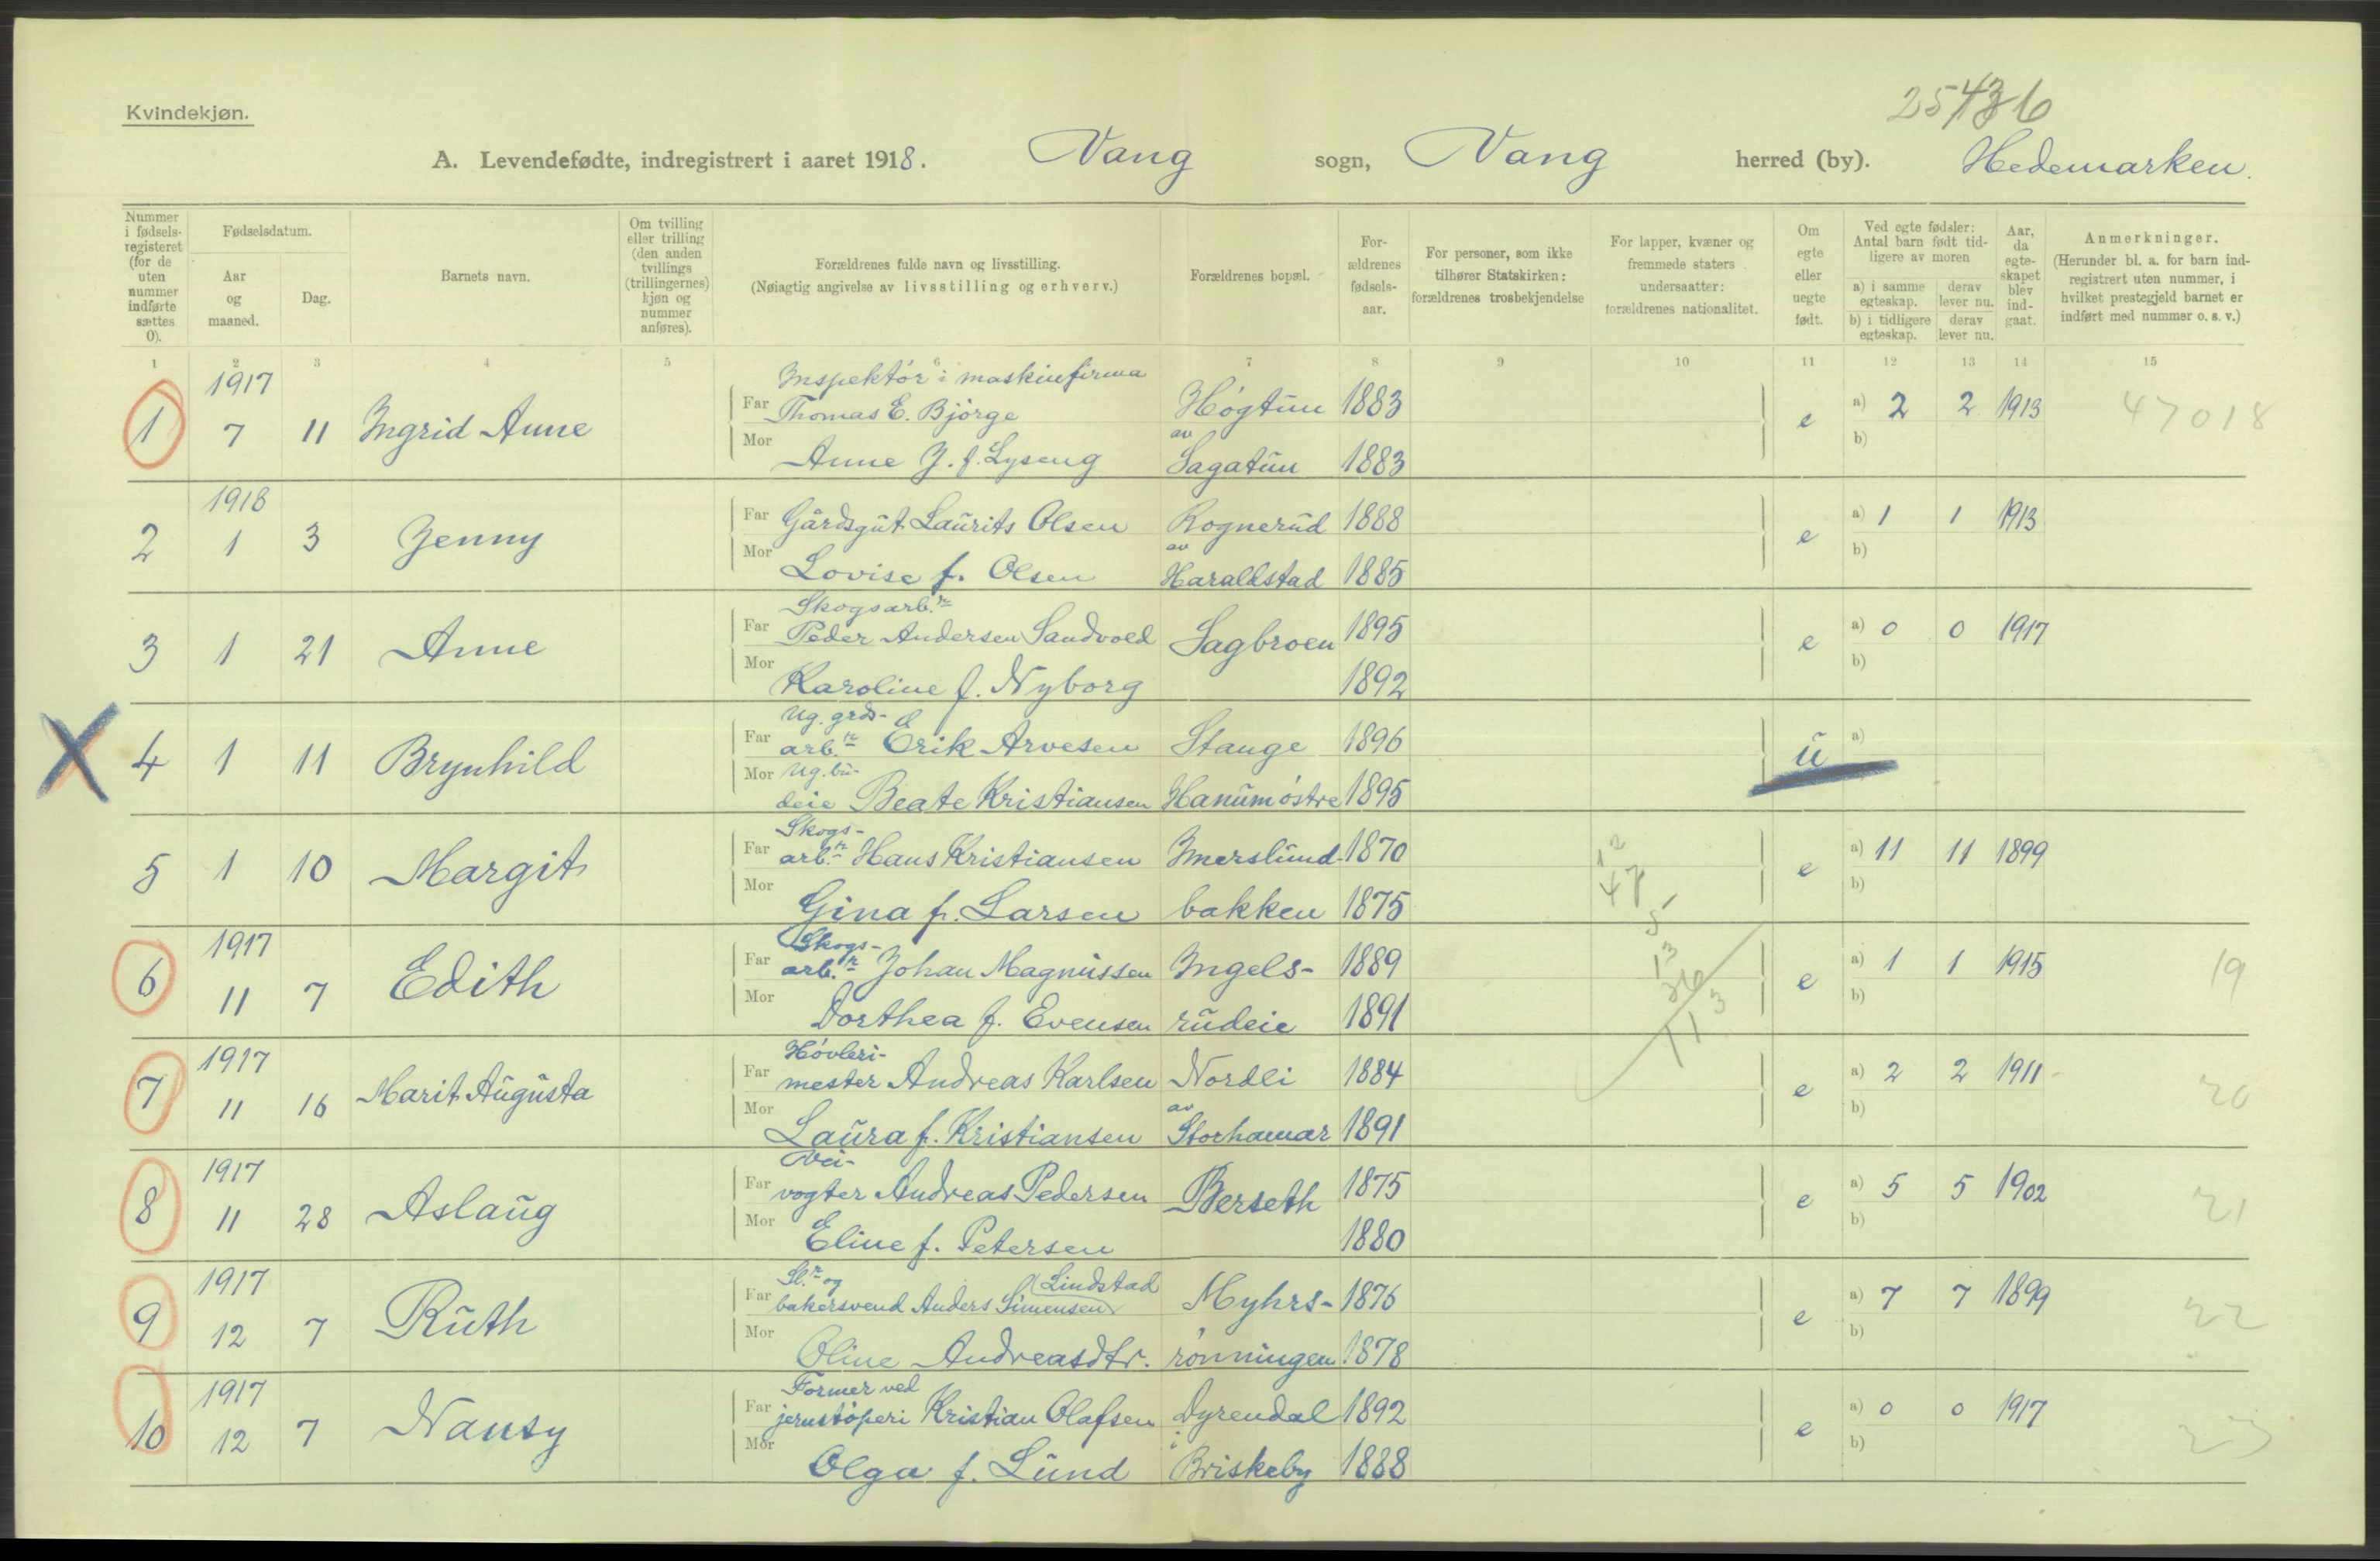 25436
Kvindekjøn.
A. Levendefødte, indregistrert i aaret 1918. Vang sogn, Vang herred (by). Hedemarken.
Nummer i fødsels-registeret (for de uten nummer indførte sættes 0).
Fødselsdatum.
Aar og maaned.
Dag.
Barnets navn.
Om tvilling eller trilling (den anden tvillings (trillingernes) kjøn og nummer anføres).
Forældrenes fulde navn og livsstilling.
(Nøiagtig angivelse av livsstilling og erhverv.)
Forældrenes bopæl.
For-ældrenes fødsels-aar.
For personer, som ikke tilhører Statskirken: forældrenes trosbekjendelse
For lapper, kvæner og fremmede staters undersaatter: forældrenes nationalitet.
Om egte eller uegte født.
Ved egte fødsler: Antal barn født tid-ligere av moren
a) i samme egteskap. derav lever nu.
b) i tidligere egteskap. derav lever nu.
Aar, da egte-skapet blev ind-gaat.
Anmerkninger.
(Herunder bl. a. for barn ind-registrert uten nummer, i hvilket prestegjeld barnet er indført med nummer o. s. v.)
1 2 3 4 5 6 7 8 9 10 11 12 13 14 15
1917 Inspektör i maskinfirma
Far Thomas E. Björge Högtun 1883 a) 2 2 1913
1 7 11 Ingrid Anne e 47018
Mor Anne J. f. Lyseng av Sagatun 1883 b)
1918
Far Gårdsgut Laurits Olsen Rognerud 1888 a) 1 1 1913
2 1 3 Jenny e
Mor Lovise f. Olsen av Haraldstad 1885 b)
Skogsarb.r
Far Peder Andersen Sandvold Sagbroen 1895 a) 0 0 1917
3 1 21 Anne e
Mor Karoline f. Nyborg 1892 b)
Ug. grds-
Far arb.r Erik Arvesen Stange 1896 a)
X 4 1 11 Brynhild u
Mor Ug. bu-
deie Beate Kristiansen Hanumöstre 1895
Skogs-
Far arb.r Hans Kristiansen Imerslund- 1870 a) 11 11 1899
5 1 10 Margit e
Mor Gina f. Larsen bakken 1875 b)
1917 Skogs-
Far arb.r Johan Magnussen Ingels- 1889 a) 1 1 1915
6 11 7 Edith e 19
Mor Dorthea f. Evensen rudeie 1891 b)
1917 Hövleri-
Far mester Andreas Karlsen Nordli 1884 a) 2 2 1911
7 11 16 Marit Augusta e 20
Mor Laura f. Kristiansen av Storhamar 1891 b)
1917 Vei-
Far vogter Andreas Pedersen Berseth 1875 a) 5 5 1902
8 11 28 Aslaug e 21
Mor Eline f. Petersen 1880 b)
1917 Sl.r og Lindstad
Far bakersvend Anders Simensen Myhrs- 1876 a) 7 7 1899
9 12 7 Ruth e 22
Mor Oline Andreasdtr. rönningen 1878 b)
1917 Former ved
Far jernstöperi Kristian Olafsen Dyrendal 1892 a) 0 0 1917
10 12 7 Nansy e 23
Mor Olga f. Lund i Briskeby 1888 b)